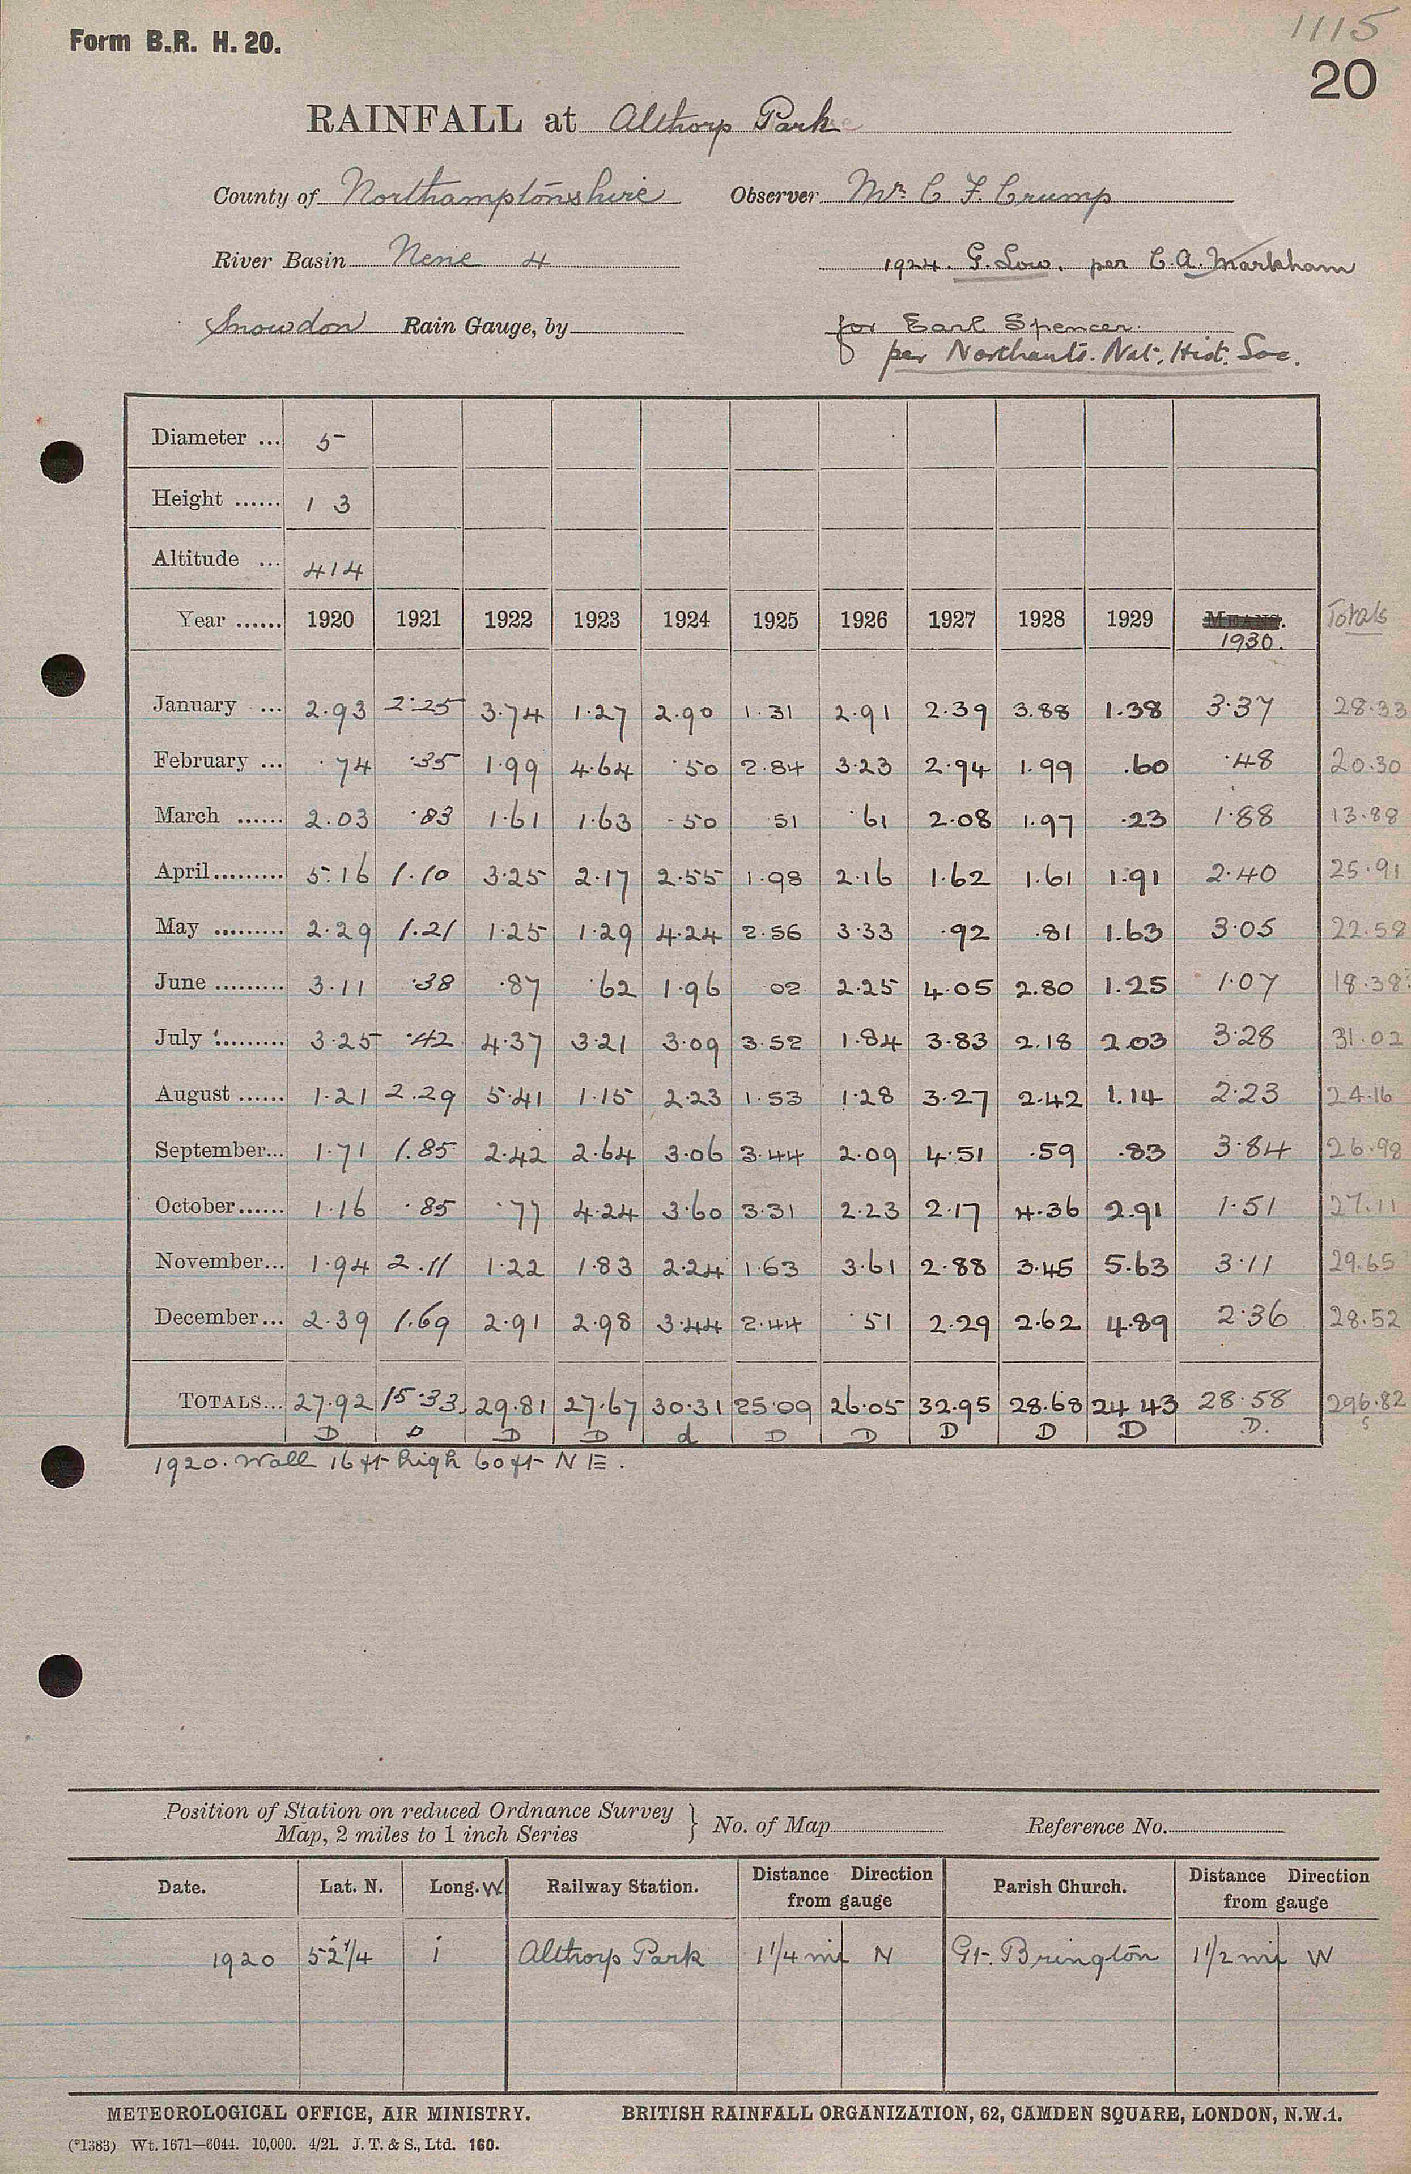 1115
Form B.R. H. 20.
20
RAINFALL at Althorp Park
County of Northamptonshire Observer Mr. C F. Crump
River Basin Nene 4 1924. G. Low. per C. A. Markham
Snowdon Rain Gauge, by for Earl Spencer.
per Northants. Nat. Hist. Soc.
Diameter ... 5
Height ...... 1 3
Altitude ... 414
Year ...... 1920 1921 1922 1923 1924 1925 1926 1927 1928 1929 MEANS. Totals
1930.
January ... 2.93 2.25 3.74 1.27 2.90 1.31 2.91 2.39 3.88 1.38 3.37 28.33
February ... .74 .35 1.99 4.64 .50 2.84 3.23 2.94 1.99 .60 .48 20.30
March ...... 2.03 .83 1.61 1.63 .50 51 .61 2.08 1.97 .23 1.88 13.88
April......... 5.16 1.10 3.25 2.17 2.55 1.98 2.16 1.62 1.61 1.91 2.40 25.91
May ......... 2.29 1.21 1.25 1.29 4.24 2.56 3.33 .92 .81 1.63 3.05 22.58
June ......... 3.11 .38 .87 .62 1.96 02 2.25 4.05 2.80 1.25 1.07 18.38
July ......... 3.25 .42 4.37 3.21 3.09 3.52 1.84 3.83 2.18 2.03 3.28 31.02
August ...... 1.21 2.29 5.41 1.15 2.23 1.53 1.28 3.27 2.42 1.14 2.23 24.16
September... 1.71 1.85 2.42 2.64 3.06 3.44 2.09 4.51 .59 .83 3.84 26.98
October...... 1.16 .85 .77 4.24 3.60 3.31 2.23 2.17 4.36 2.91 1.51 27.11
November... 1.94 2.11 1.22 1.83 2.24 1.63 3.61 2.88 3.45 5.63 3.11 29.65
December... 2.39 1.69 2.91 2.98 3.44 2.44 .51 2.29 2.62 4.89 2.36 28.52
TOTALS... 27.92 15.33 29.81 27.67 30.31 25.09 26.05 32.95 28.68 24 43 28.58 296.82
D D D D d D D D D D D. s
1920. Wall 16 ft high 60 ft N E.
Position of Station on reduced Ordnance Survey
Map, 2 miles to 1 inch Series } No. of Map Reference No.
Date. Lat. N. Long. W Railway Station. Distance Direction from gauge Parish Church. Distance Direction from gauge
1920 52 1/4 1 Althorp Park 1 1/4 mi N Gt. Brington 1 1/2 mi W
METEOROLOGICAL OFFICE, AIR MINISTRY. BRITISH RAINFALL ORGANIZATION, 62, CAMDEN SQUARE, LONDON, N.W.1.
(*1383) Wt. 1671—6044. 10,000. 4/21. J. T. & S., Ltd. 160.